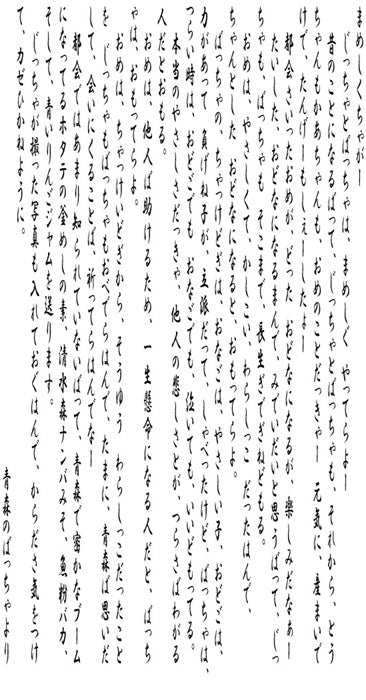 まめしくちゃがー
じっちゃとばっちゃは、まめしぐ やってらよー
昔のことになるばって、じっちゃとばっちゃも、それから、とう
ちゃんもかあちゃんも、おめのことだっきゃー 元気に、産まいで
けで、たんげーもしぇーしたよー
都会さいったおめが、どった おどなになるが、楽しみだなぁー
たいした、おどなになるまんで、みでいだいと思うばって、じっ
ちゃも、ばっちゃも そこまで、長生ぎでぎねどもる。
おめは、やさしくて、かしこい、わらしっこ だったはんで、
ちゃんとした おどなになると、おもってらよ。
ばっちゃの、ちゃっけどぎは、おなごは、やさしい子、おどごは、
力があて 負げね子が、立派だって、しゃべったけど、ばっちゃは、
つらい時は、おどごでも おなごでも、泣いても、いいどもってる。
本当のやさしさだっきゃ、他人の悲しさとが、つらさばわがる
人だとおもる。
おめは、他人ば助けるため、一生懸命になる人だと、ばっち
ゃは、おもってらよ。
おめは、ちゃっけいどぎから、そうゆう わらしっこだったこと
を じっちゃもばっちゃもおべでらはんで、たまに、青森ば思いだ
して、会いにくることば、祈ってらはんでなー
都会ではあまり知られていないばって、青森で密かなブーム
になってるホタテの釜めしの素、清水森ナンバみそ、魚粉バカ、
そして、青いりんごジャムを送ります。
じっちゃが撮った写真も入れておぐはんで、からださ気をつけ
て、カゼひかねように。
青森のばっちゃより